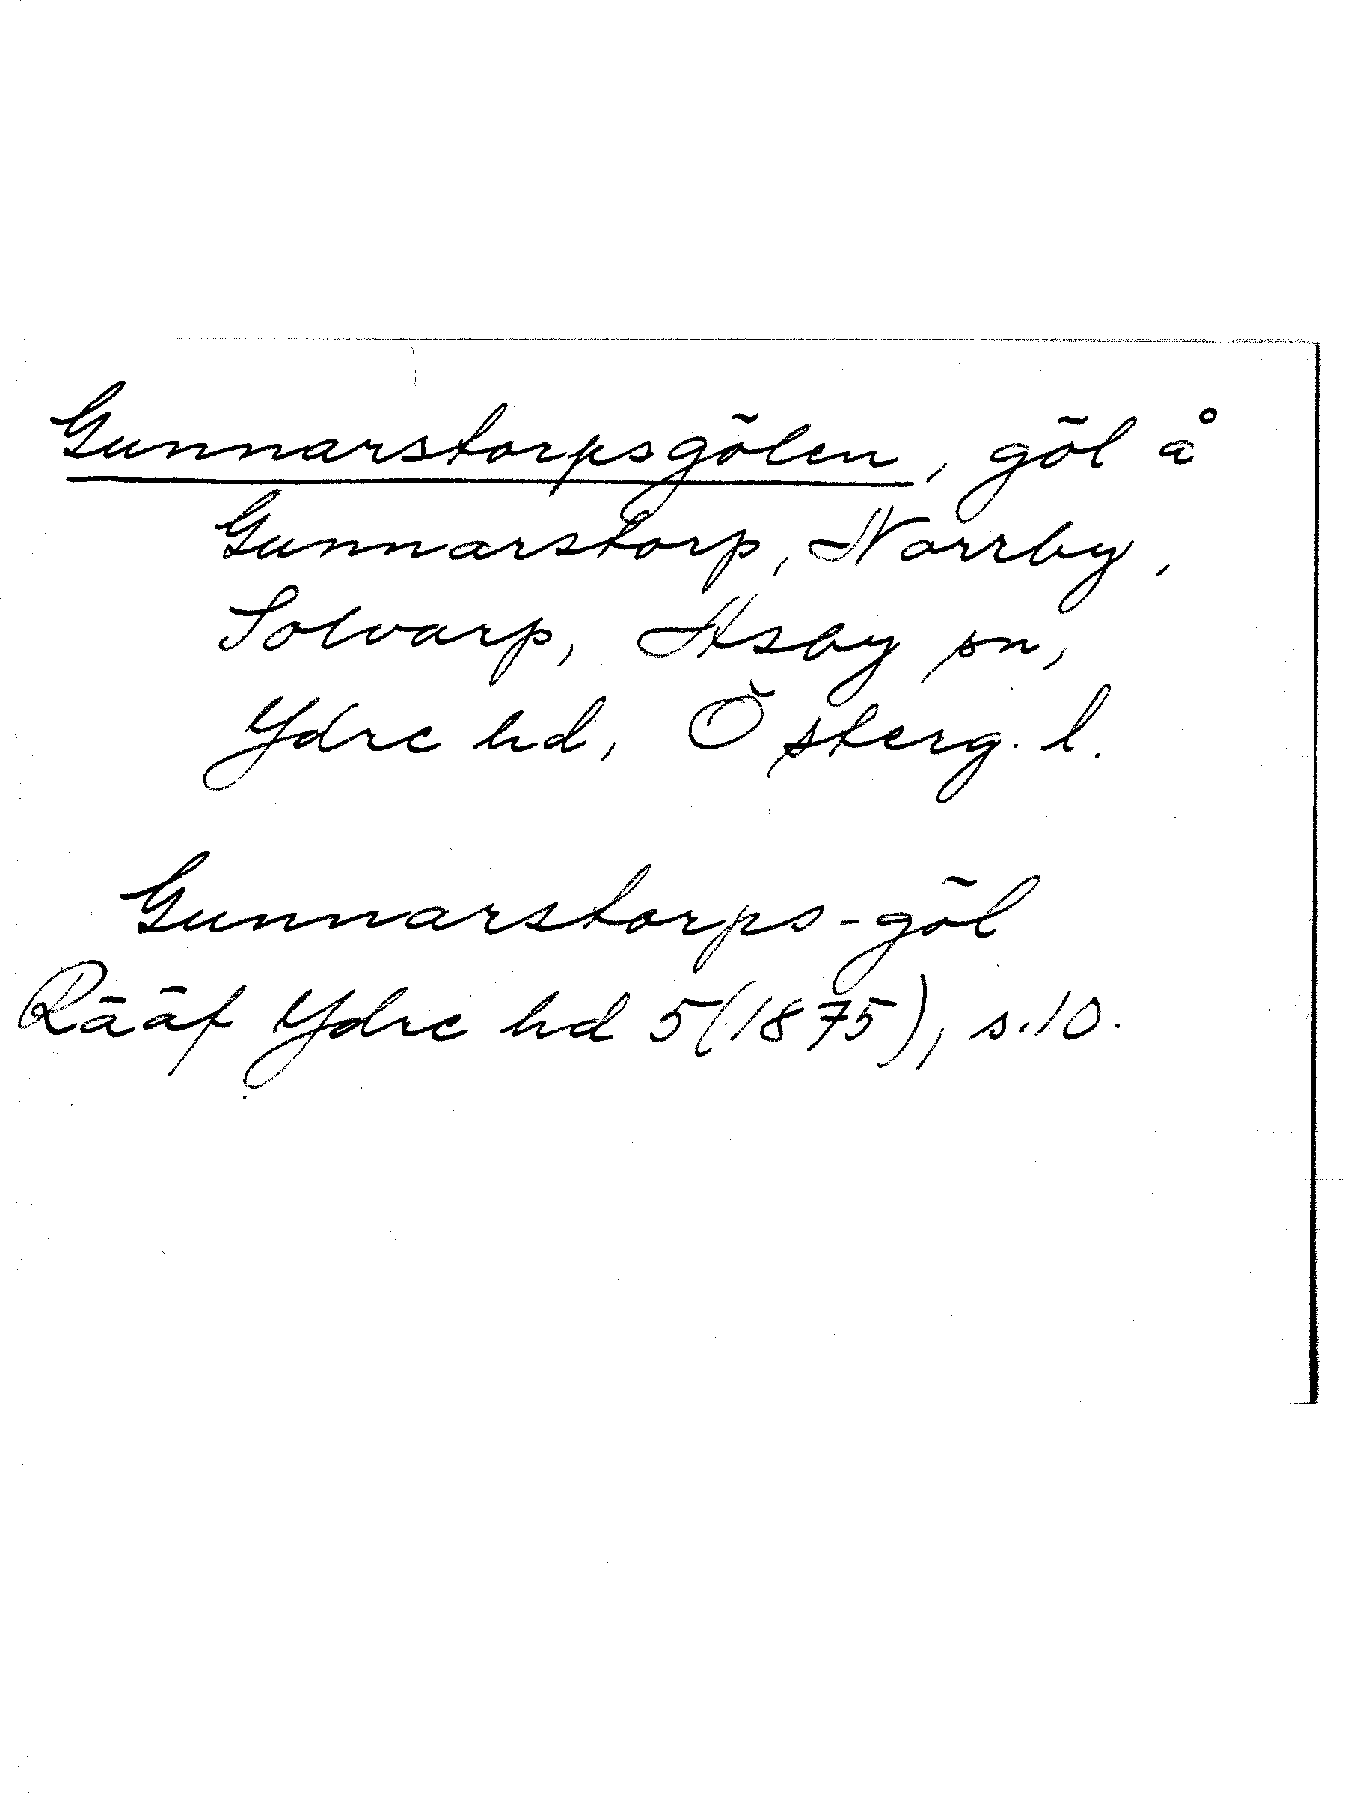 Gunnarstorpsgölen, göl å
Gunnarstorp, Norrby,
Solvarp, Asby sn,
Ydre hd, Österg. l.
Gunnarstorps-göl
Rääf Ydre hd 5(1875), s.10.